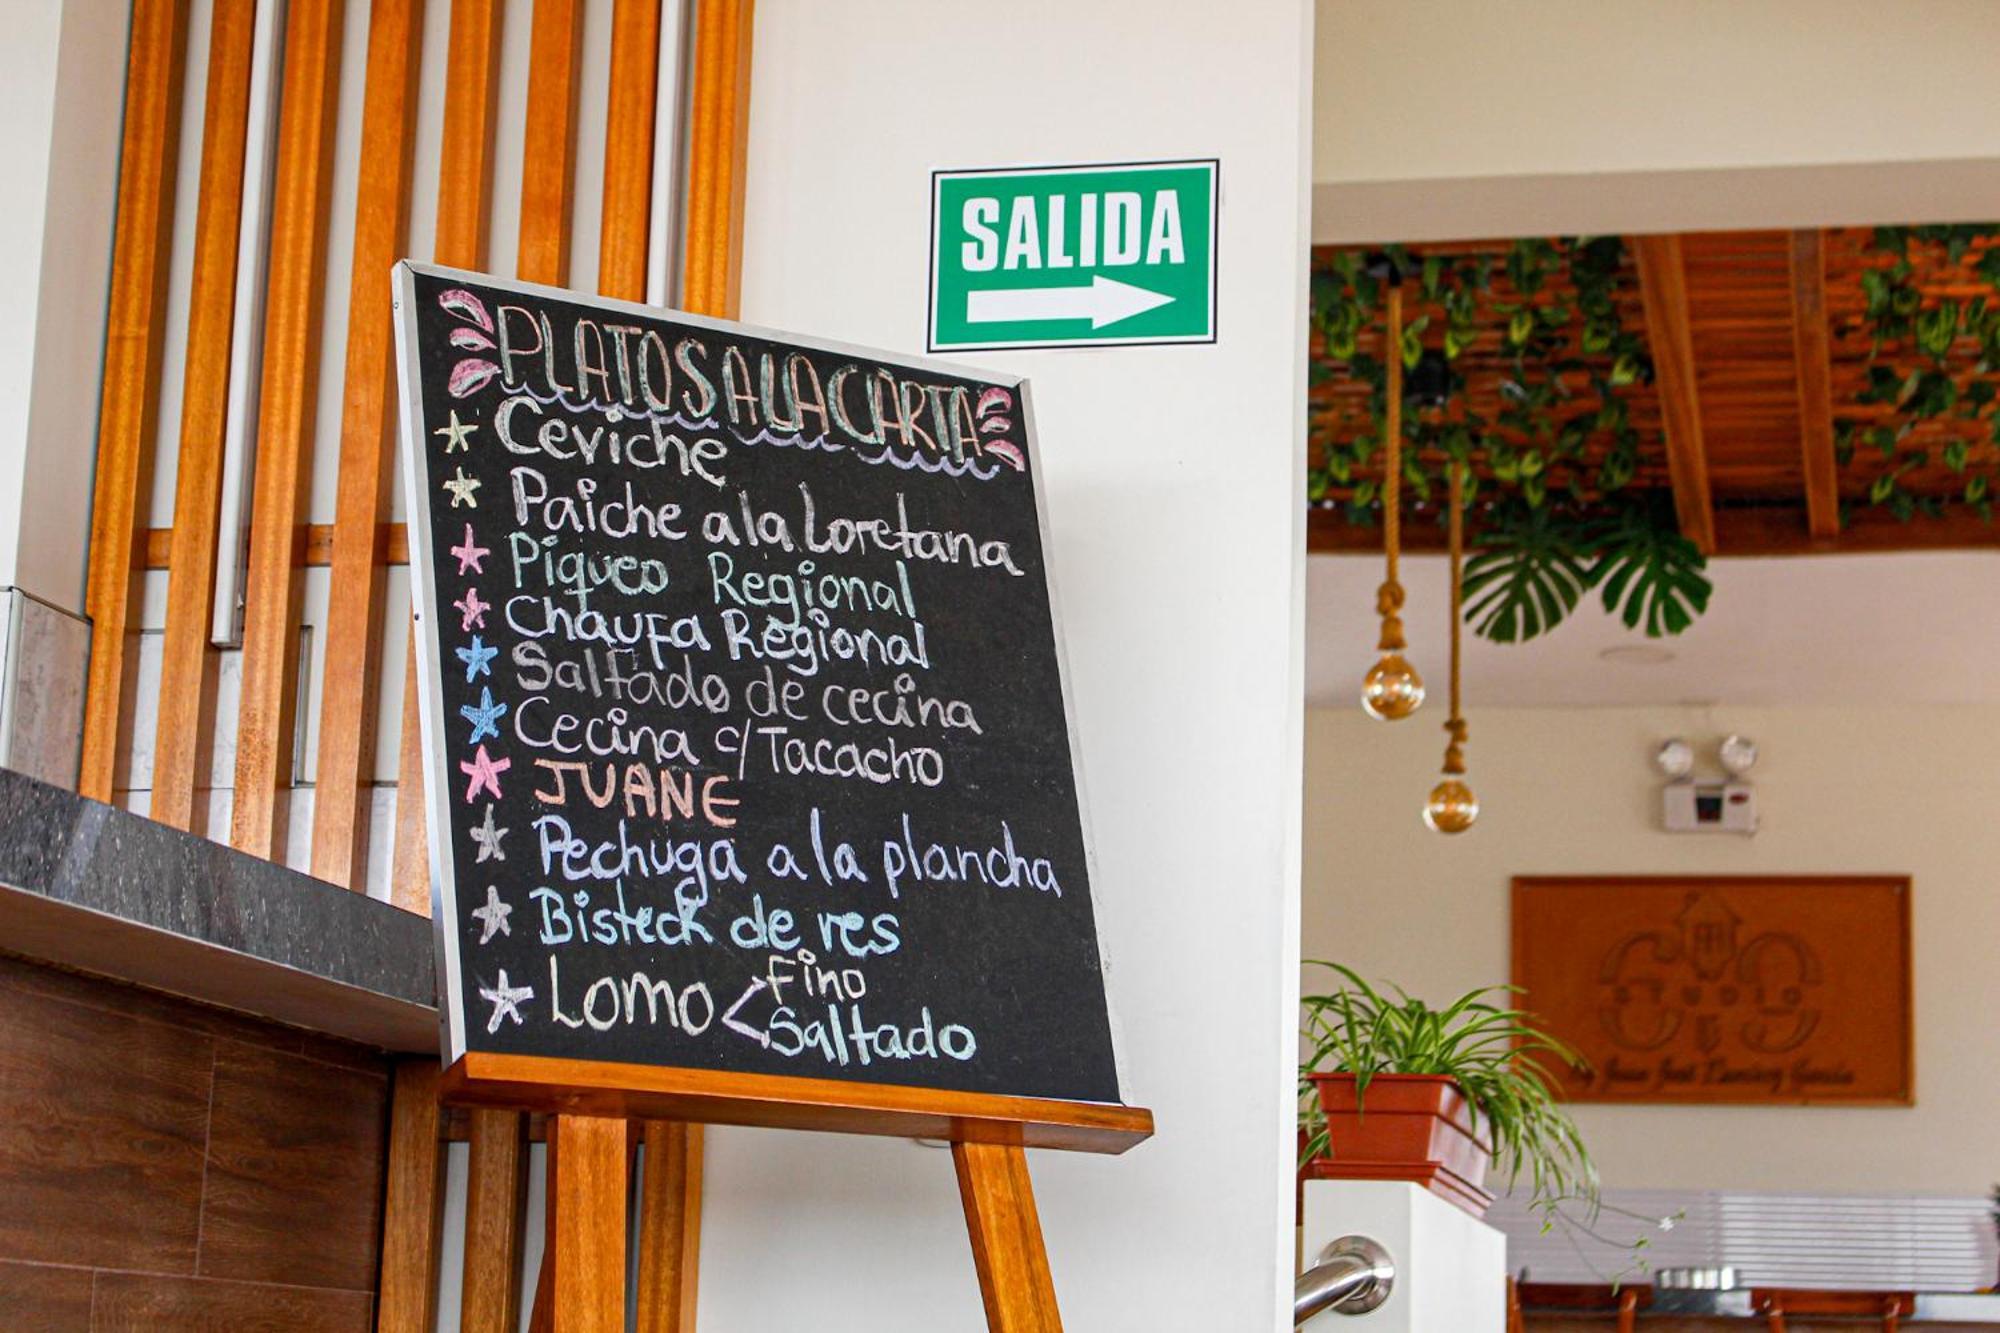 SALIDA
PLATOS A LA CARTA
Ceviche
Paiche a la Loretana
Piqueo Regional
Chaufa Regional
Saltado de cecina
Cecina c/ Tacacho
JUANE
Pechuga a la plancha
Bisteck de res
Lomo < Fino
Saltado
STUDIO